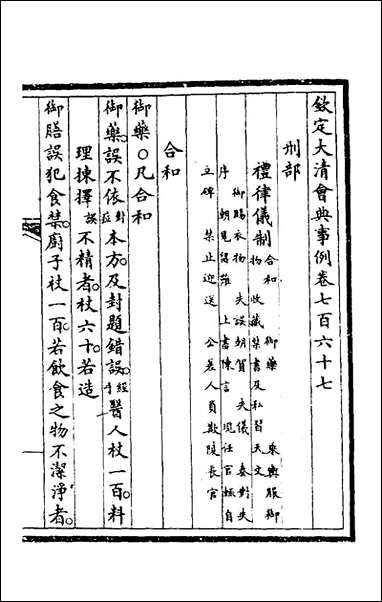 欽定大清會典事例卷七百六十七
刑部
禮律儀制 合和 御藥 乘輿服御
物 收藏禁書及私習天文
御賜衣物 失誤朝賀 失儀 奏對失
序 朝見留難 上書陳言 見任官輒自
立碑 禁止迎送 公差人員欺陵長官
合和
御藥○凡合和
御藥誤不依對症本方及封題錯誤經手醫人杖一百料
理揀擇誤不精者杖六十若造
御膳誤犯食禁廚子杖一百若飲食之物不潔淨者